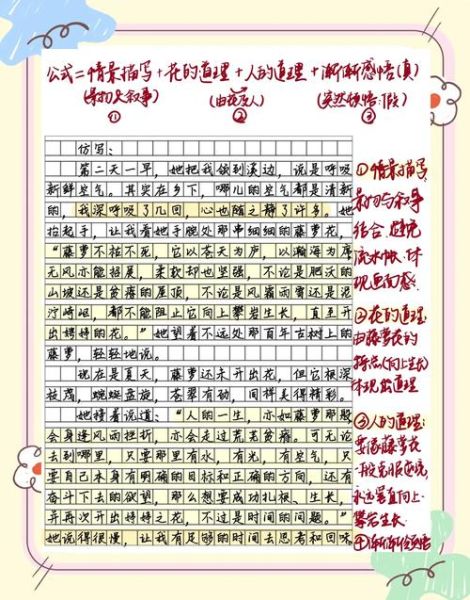 公式=情景描写+花的道理+人的道理+渐渐感悟(真)
(景物+叙事)
(由花及人)
(突然顿悟:假)
①
②
③
仿写:
第二天一早,她把我领到溪边,说是呼吸
新鲜空气。其实在乡下,哪儿的空气都是清新
的,我深呼吸了几回,心也随之静了许多。她
抬起手,让我看她手腕处那串细细的藤萝花,
“藤萝不枯不死,它以苍天为庐,以瀚海为席
无风亦能招展,柔软却也坚强,不论是肥沃的
山坡还是贫瘠的屋顶,不论是风霜雨雾还是泥
泞崎岖,都不能阻止它向上攀岩生长,直至开
出娉婷的花。”她望着不远处那百年古树上的
藤萝,轻轻地说。
现在是夏天,藤萝还未开出花,但它根深
枝茂,蜿蜒盘旋,苍翠有劲,同样美得精彩。
她接着说道:“人的一生,亦如藤萝那般
会身逢风雨挫折,亦会走过荒芜贫瘠。可无论
去到哪里,只要那里有水,有光,有空气,只
要自己本身有明确的目标和正确的方向,还有
奋斗下去的欲望,那么想要成功扎根、生长,
并再次开出娉婷之花,不过是时间的问题。”
她说得很慢,让我有足够的时间去思考和回味
①情景描写
景物与叙事
结合,避免
流水帐,体
现画面感。
②花的道理:
由藤萝花的
特点(向上生长)
体现出道理
③人的道理:
要像藤萝花
一般克服困境,
永远笔直向上
攀岩生长
④渐渐领悟,